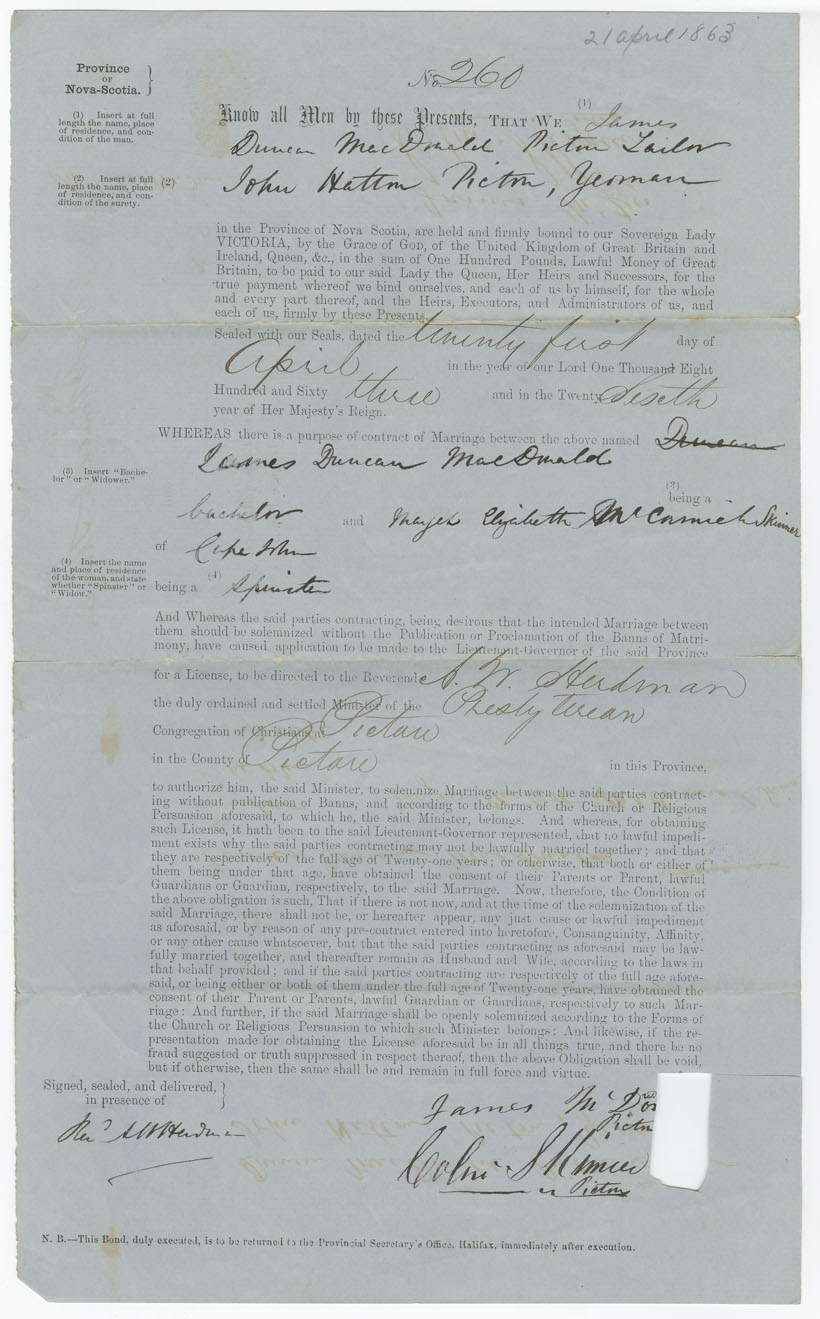 21 april 1863
Province
OF
Nova-Scotia.
No. 260
(1) Insert at full
length the name, place
of residence, and con-
dition of the man.
Know all Men by these Presents, THAT WE (1) James
Duncan MacDonald Pictou Tailor
(2) Insert at full
length the name, place
of residence, and con-
dition of the surety.
(2) John Hatton Pictou, Yeoman
in the Province of Nova Scotia, are held and firmly bound to our Sovereign Lady
VICTORIA, by the Grace of GOD, of the United Kingdom of Great Britain and
Ireland, Queen, &c., in the sum of One Hundred Pounds, Lawful Money of Great
Britain, to be paid to our said Lady the Queen, Her Heirs and Successors, for the
true payment whereof we bind ourselves, and each of us by himself, for the whole
and every part thereof, and the Heirs, Executors, and Administrators of us, and
each of us, firmly by these Presents.
Sealed with our Seals, dated the twenty first day of
April in the year of our Lord One Thousand Eight
Hundred and Sixty three and in the Twenty
year of Her Majesty's Reign.
WHEREAS there is a purpose of contract of Marriage between the above named Duncan
James Duncan MacDonald
(3) Insert "Bache-
lor" or "Widower."
(3)
being a
bachelor and Elizabeth McCormick Skinner
of Cape John
(4) Insert the name
and place of residence
of the woman, and state
whether "Spinster" or
"Widow."
being a (4) Spinster
And Whereas the said parties contracting, being desirous that the intended Marriage between
them should be solemnized without the Publication or Proclamation of the Banns of Matri-
mony, have caused application to be made to the Lieutenant-Governor of the said Province
for a License, to be directed to the Reverend A. W. Herdman
the duly ordained and settled Minister of the Presbyterian
Congregation of Christians at Pictou
in the County of Pictou in this Province,
to authorize him, the said Minister, to solemnize Marriage between the said parties contract-
ing without publication of Banns, and according to the forms of the Church or Religious
Persuasion aforesaid, to which he, the said Minister, belongs. And whereas, for obtaining
such License, it hath been to the said Lieutenant-Governor represented, that no lawful impedi-
ment exists why the said parties contracting may not be lawfully married together; and that
they are respectively of the full age of Twenty-one years; or otherwise, that both or either of
them being under that age, have obtained the consent of their Parents or Parent, lawful
Guardians or Guardian, respectively, to the said Marriage. Now, therefore, the Condition of
the above obligation is such, That if there is not now, and at the time of the solemnization of the
said Marriage, there shall not be, or hereafter appear, any just cause or lawful impediment
as aforesaid, or by reason of any pre-contract entered into heretofore, Consanguinity, Affinity,
or any other cause whatsoever, but that the said parties contracting as aforesaid may be law-
fully married together, and thereafter remain as Husband and Wife, according to the laws in
that behalf provided; and if the said parties contracting are respectively of the full age afore-
said, or being either or both of them under the full age of Twenty-one years, have obtained the
consent of their Parent or Parents, lawful Guardian or Guardians, respectively to such Mar-
riage: And further, if the said Marriage shall be openly solemnized according to the Forms of
the Church or Religious Persuasion to which such Minister belongs: And likewise, if the re-
presentation made for obtaining the License aforesaid be in all things true, and there be no
fraud suggested or truth suppressed in respect thereof, then the above Obligation shall be void,
but if otherwise, then the same shall be and remain in full force and virtue.
Signed, sealed, and delivered,
in presence of
Revd A W Herdman
James McDo
Pictou
Colin Skinner
Pictou
N. B.—This Bond, duly executed, is to be returned to the Provincial Secretary's Office, Halifax, immediately after execution.